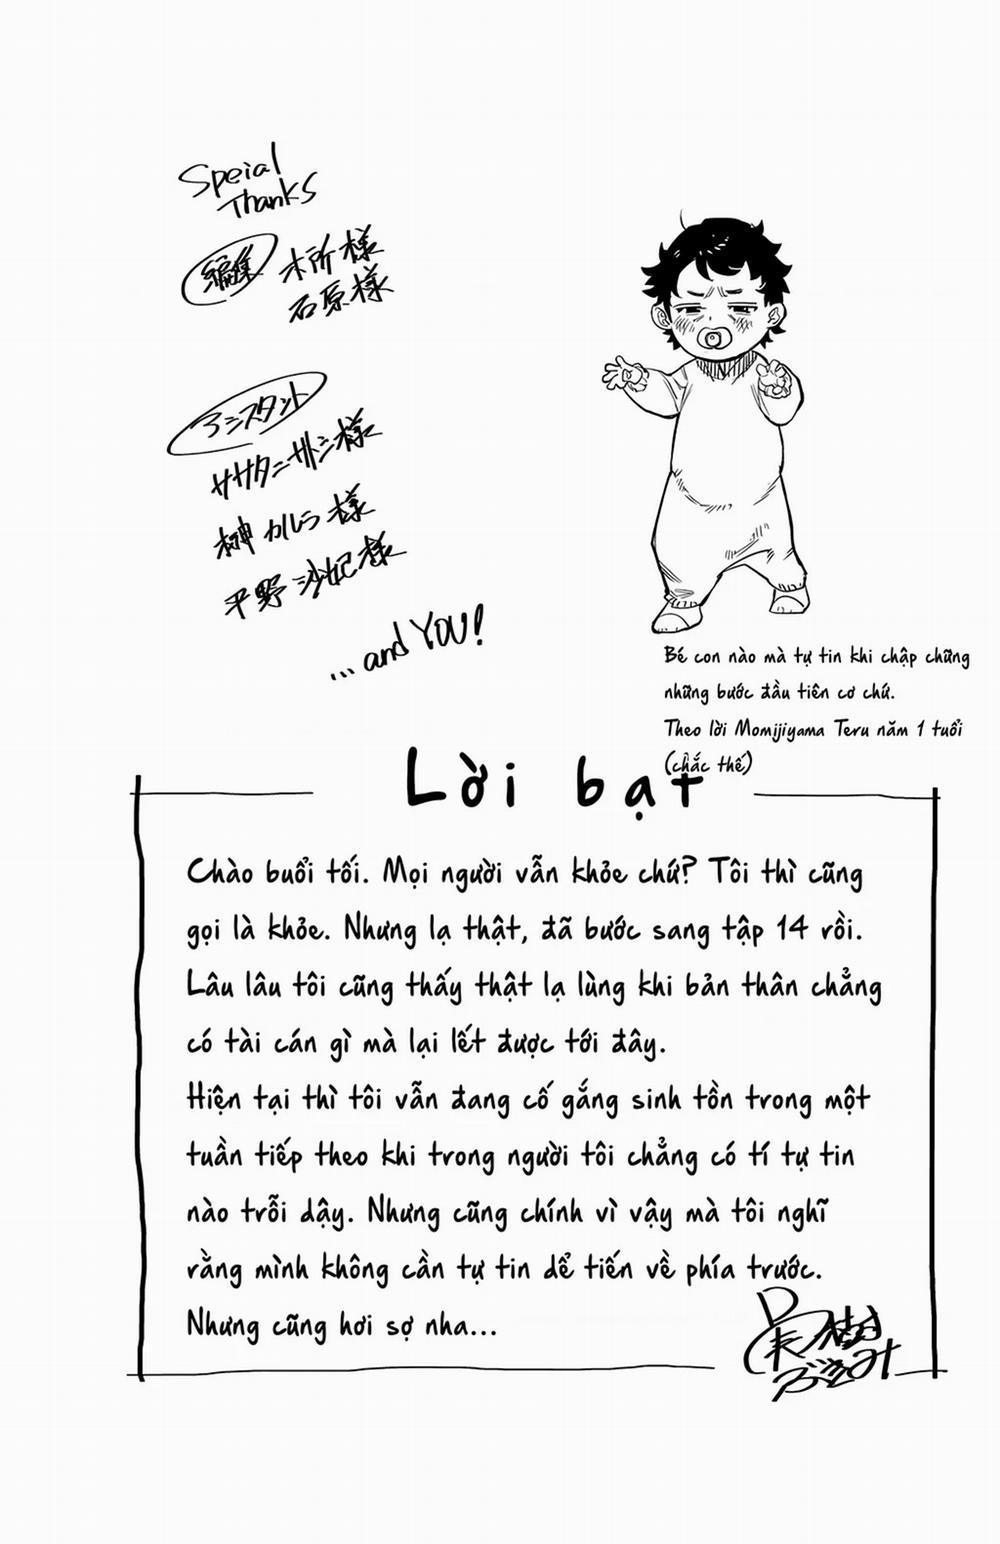 Speial
Thanks
編集
木所様
石原様
アシスタント
ササタニ サトシ様
榊 カルラ様
平野 沙妃様
...and YOU!
Bé con nào mà tự tin khi chập chững
những bước đầu tiên cơ chứ.
Theo lời Momijiyama Teru năm 1 tuổi
(chắc thế)
Lời bạt
Chào buổi tối. Mọi người vẫn khỏe chứ? Tôi thì cũng
gọi là khỏe. Nhưng lạ thật, đã bước sang tập 14 rồi.
Lâu lâu tôi cũng thấy thật lạ lùng khi bản thân chẳng
có tài cán gì mà lại lết được tới đây.
Hiện tại thì tôi vẫn đang cố gắng sinh tồn trong một
tuần tiếp theo khi trong người tôi chẳng có tí tự tin
nào trỗi dậy. Nhưng cũng chính vì vậy mà tôi nghĩ
rằng mình không cần tự tin dể tiến về phía trước.
Nhưng cũng hơi sợ nha...